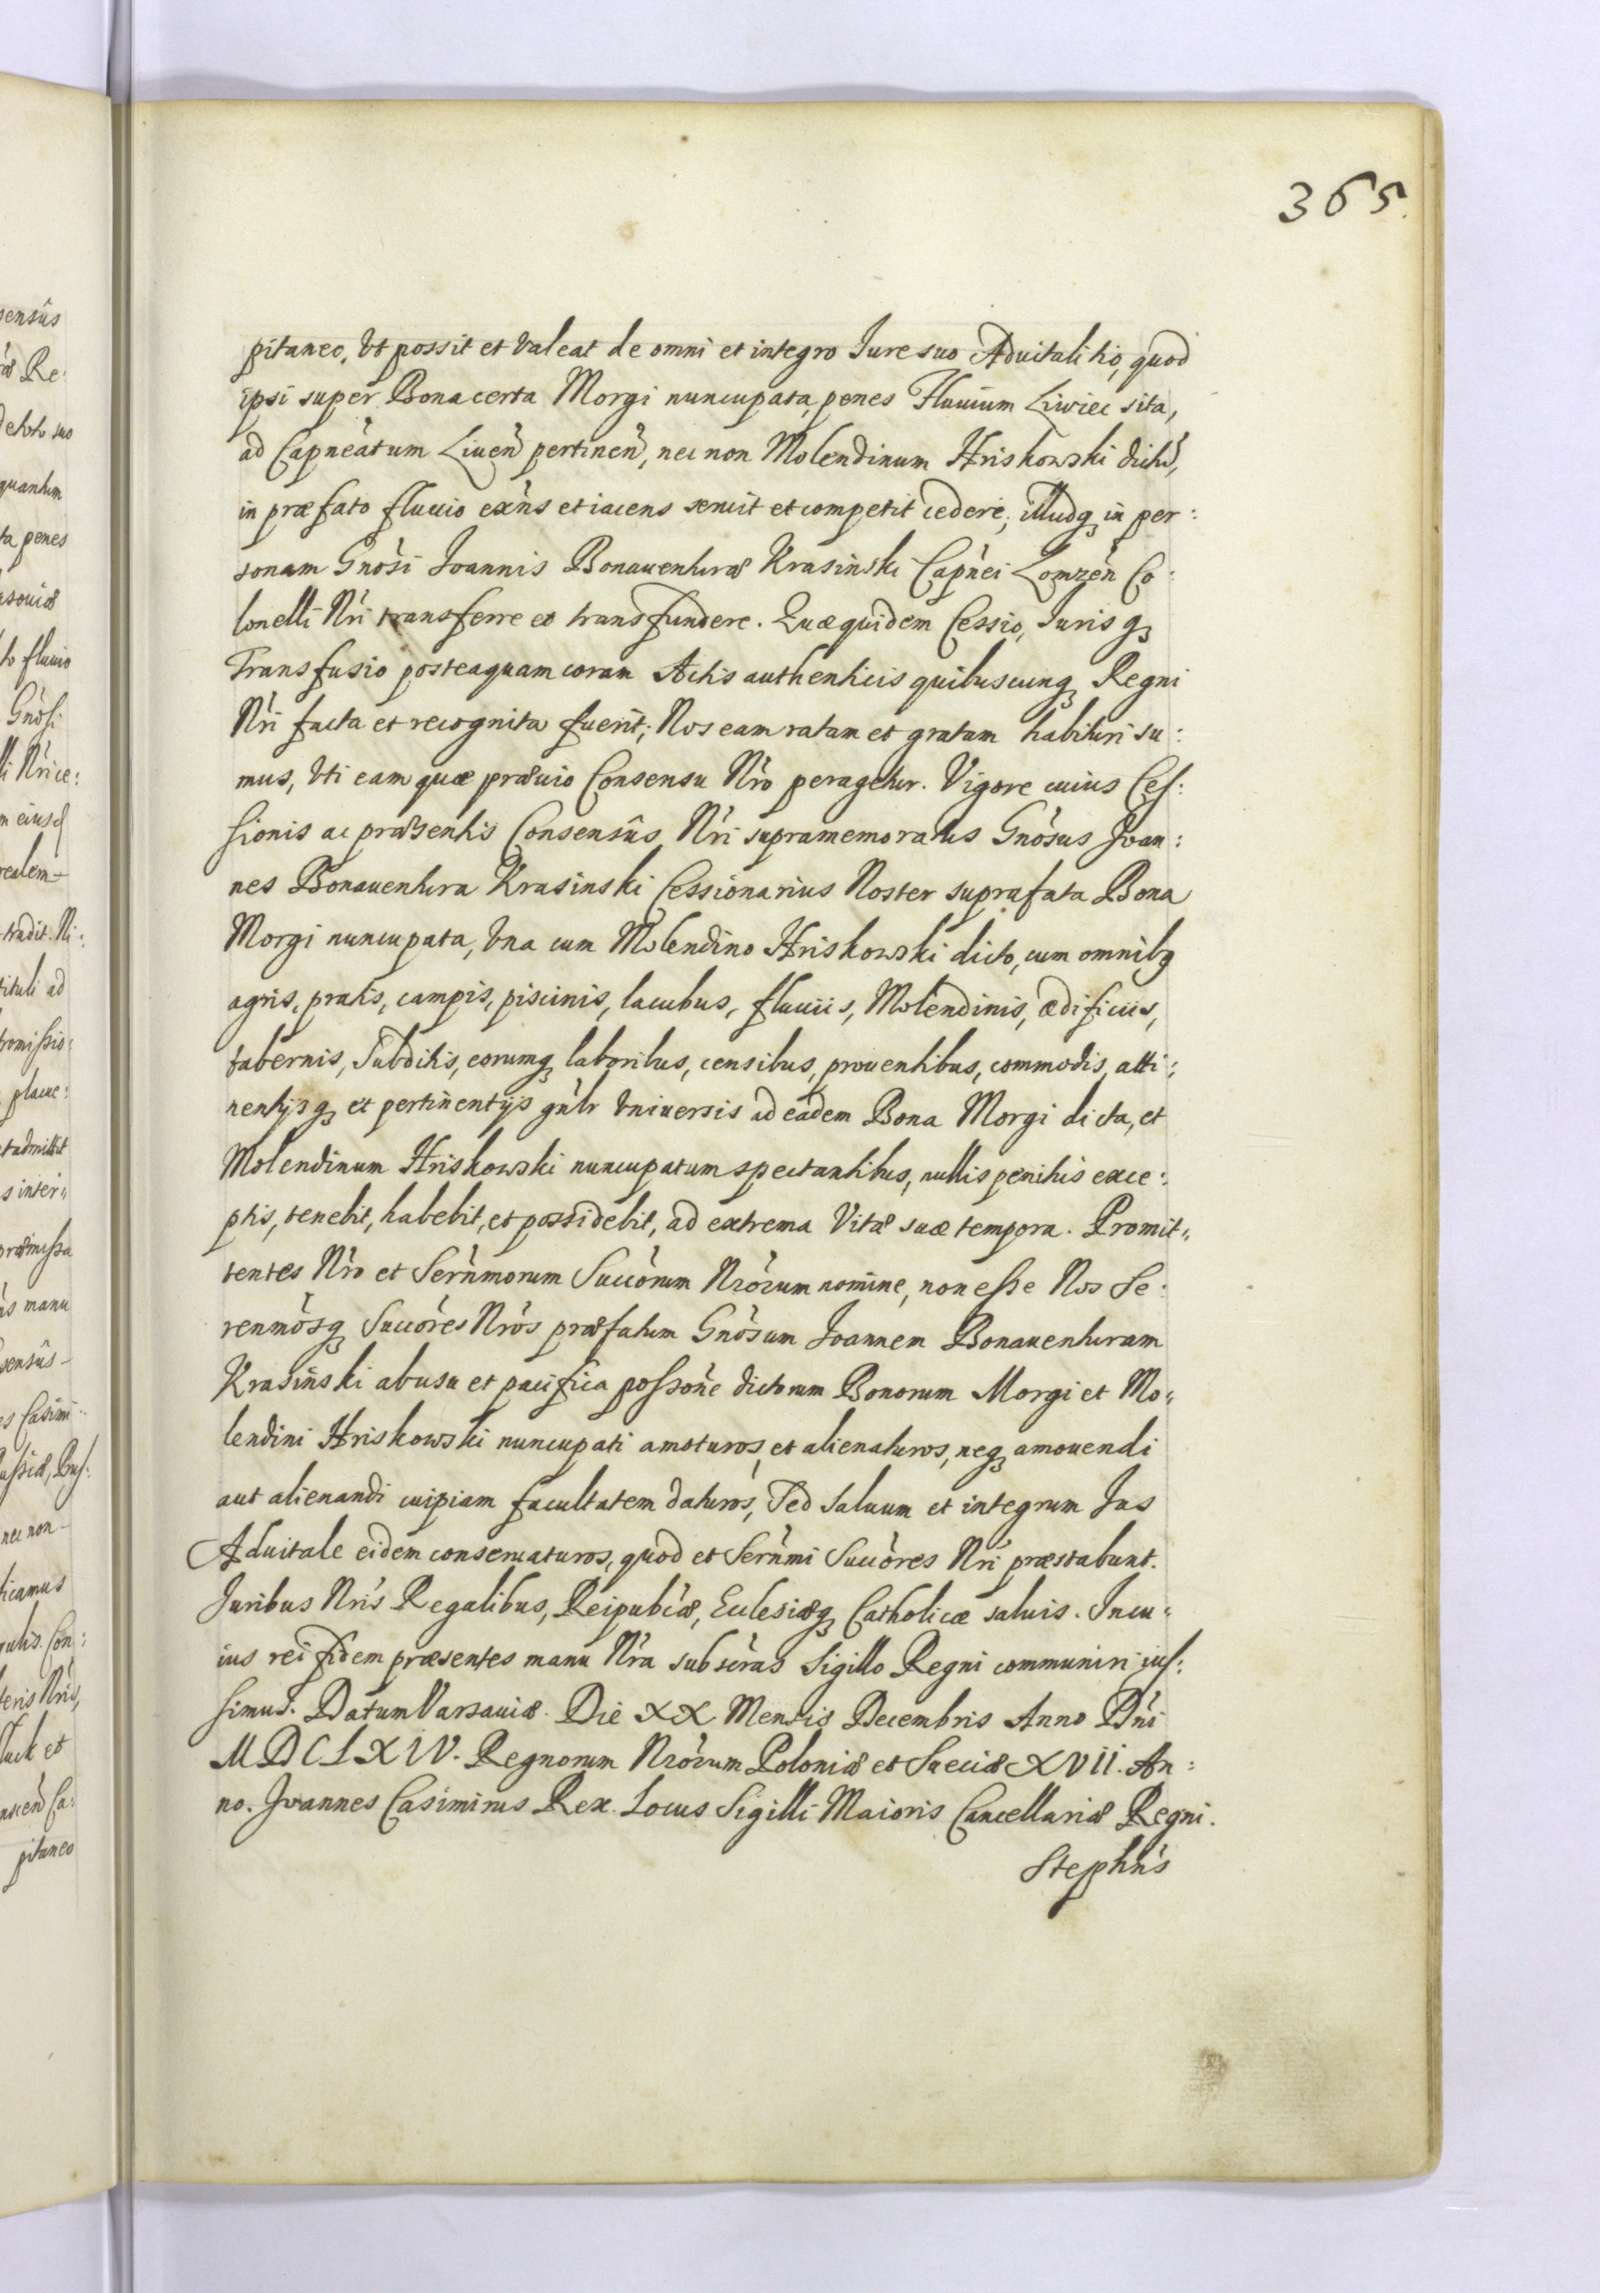 365.
pitaneo, Vt possit et valeat de omni et integro Iure suo Aduitalitio, quod
ipsi super Bona certa Morgi nuncupata, penes Fluuium Liwiec sita,
ad Capneatum Liuen pertinen, nec non Molendinum Hriskowski dictu,
in præfato fluuio exñs et iacens seruit et competit cedere, illudq in per:
sonam Gnosi Ioannis Bonauenturæ Krasinski Capnei Lomzen Co:
lonelli Nri transferre et transfundere. Quæquidem Cessio, Iurisq
Transfusio posteaquam coram Actis authenticis quibuscunq Regni
Nri facta et recognita fuerit; Nos eam ratam et gratam habituri su:
mus, Vti eam quæ præuio Consensu Nro peragetur. Vigore cuius Ces:
sionis ac præsentis Consensûs Nri supramemoratus Gnosus Joan:
nes Bonauentura Krasinski Cessionarius Noster suprafata Bona
Morgi nuncupata, Vna cum Molendino Hriskowski dicto, cum omnibq
agris, pratis, campis, piscinis, lacubus, fluuiis, Molendinis, ædificiis,
tabernis, Subditis, eorumq laboribus, censibus, prouentibus, commodis, atti:
nentijsq et pertinentijs gnlr Vniuersis ad eadem Bona Morgi dicta, et
Molendinum Hriskowski nuncupatum spectantibus, nullis penitus exce:
ptis, tenebit, habebit, et possidebit, ad extrema Vitæ suæ tempora. Promit:
tentes Nro et Sernmorum Succorum Nrorum nomine, non esse Nos Se:
renmosq Succores Nros præfatum Gnosum Joannem Bonauenturam
Krasinski ab usu et pacifica possone dictorum Bonorum Morgi et Mo:
lendini Hriskowski nuncupati amoturos, et alienaturos, neq amouendi
aut alienandi cuipiam facultatem daturos, Sed Saluum et integrum Jus
Aduitale eidem conseruaturos, quod et Sernmi Succores Nri præstabunt.
Juribus Nris Regalibus, Reipubcæ, Ecclesiæq Catholicæ saluis. In cu:
ius rei fidem præsentes manu Nra subscras Sigillo Regni communiri ius:
simus. Datum Varsauiæ. Die XX Mensis Decembris Anno Dni
MDCLXIV. Regnorum Nrorum Poloniæ et Sueciæ XVII. An:
no. Joannes Casimirus Rex. Locus Sigilli Maioris Cancellariæ Regni.
Stephns